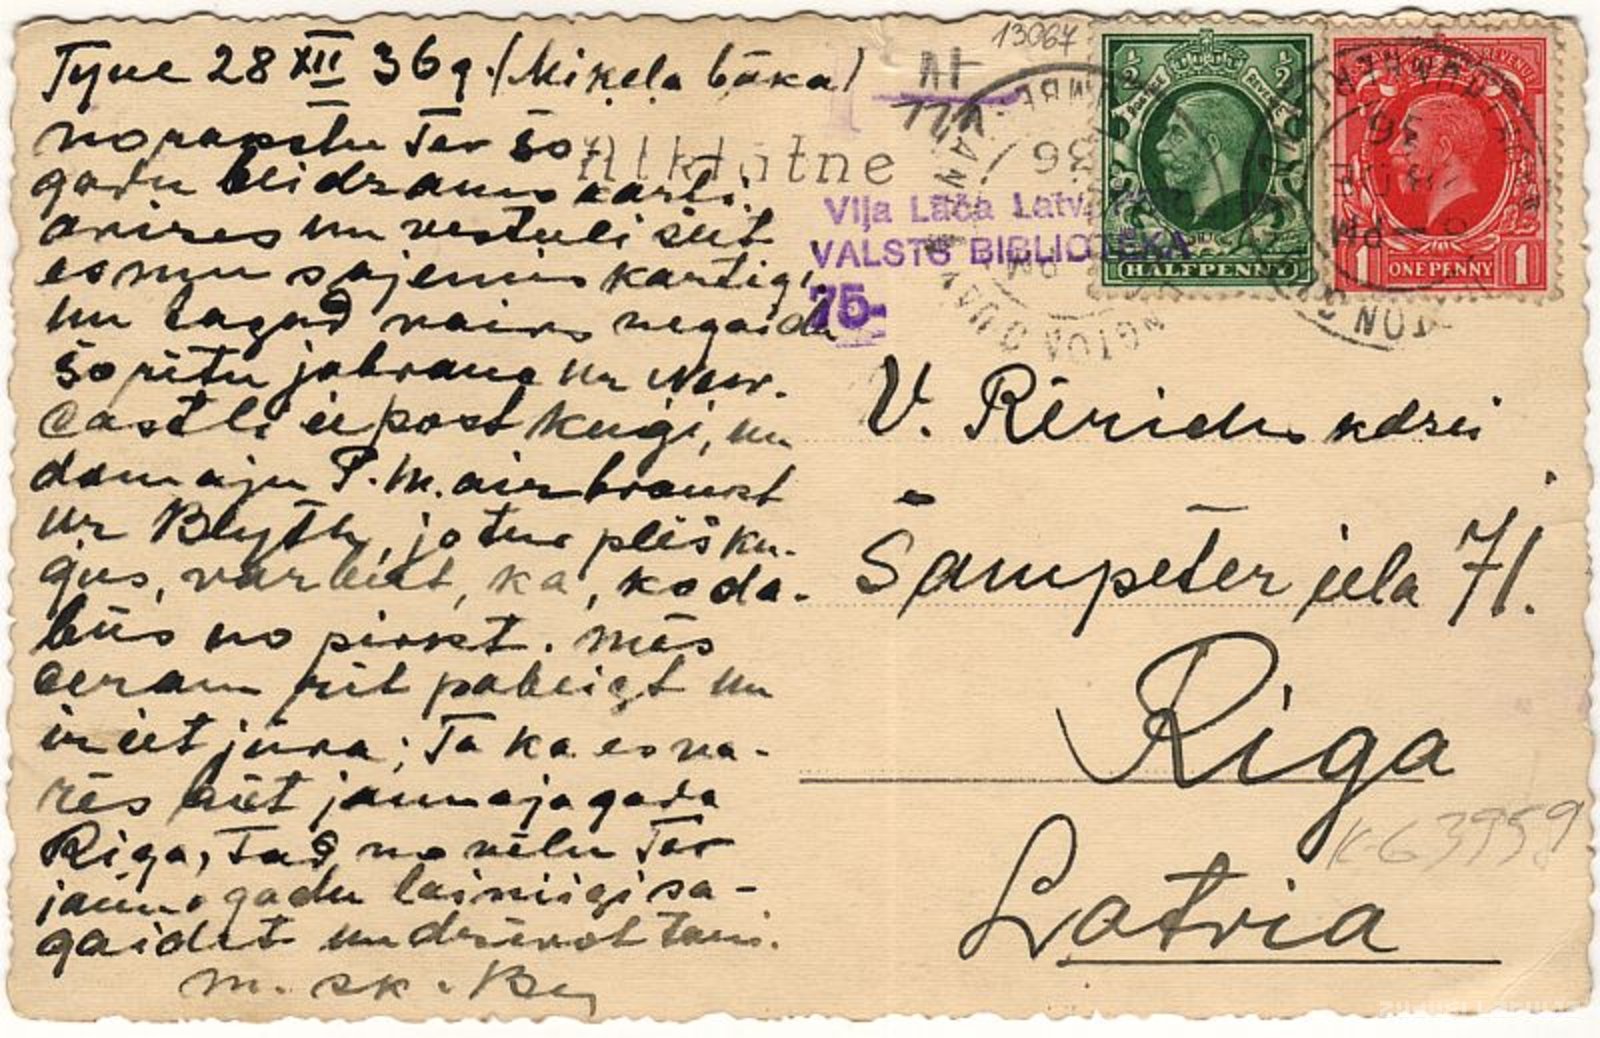 Tyne 28 XII 36 g. (Miķeļa bāka)
norakstu Tev šo
gadu beidzamo karti.
avizes un vestuli šeit
esmu saņemis kartigi,
un tagad vairs negaidu
šo rītu jabrauc uz New-
Castli iepost kuģi, un
domaju P.M. aizbraukt
uz Blyth,
gus, var būt, ka, ko da-
būs nopirkt. Mēs
ceram rīt pabeigt un
iziet jūra; Ta ka es va-
rēs būt jaunaja gada
Riga, Tad novēlu Tev
jauno gadu laimigi sa-
gaidit un dzīvot tani.
M. sk.
13067
Alklātne
Viļa Lāča Latv.
VALSTS BIBLIOTEKA
75-
HALFPENNY
POSTAGE REVENUE
1 ONE PENNY 1
V. Rērichs kdzei
Šampēter iela 71.
Riga
Latvia
K-63959